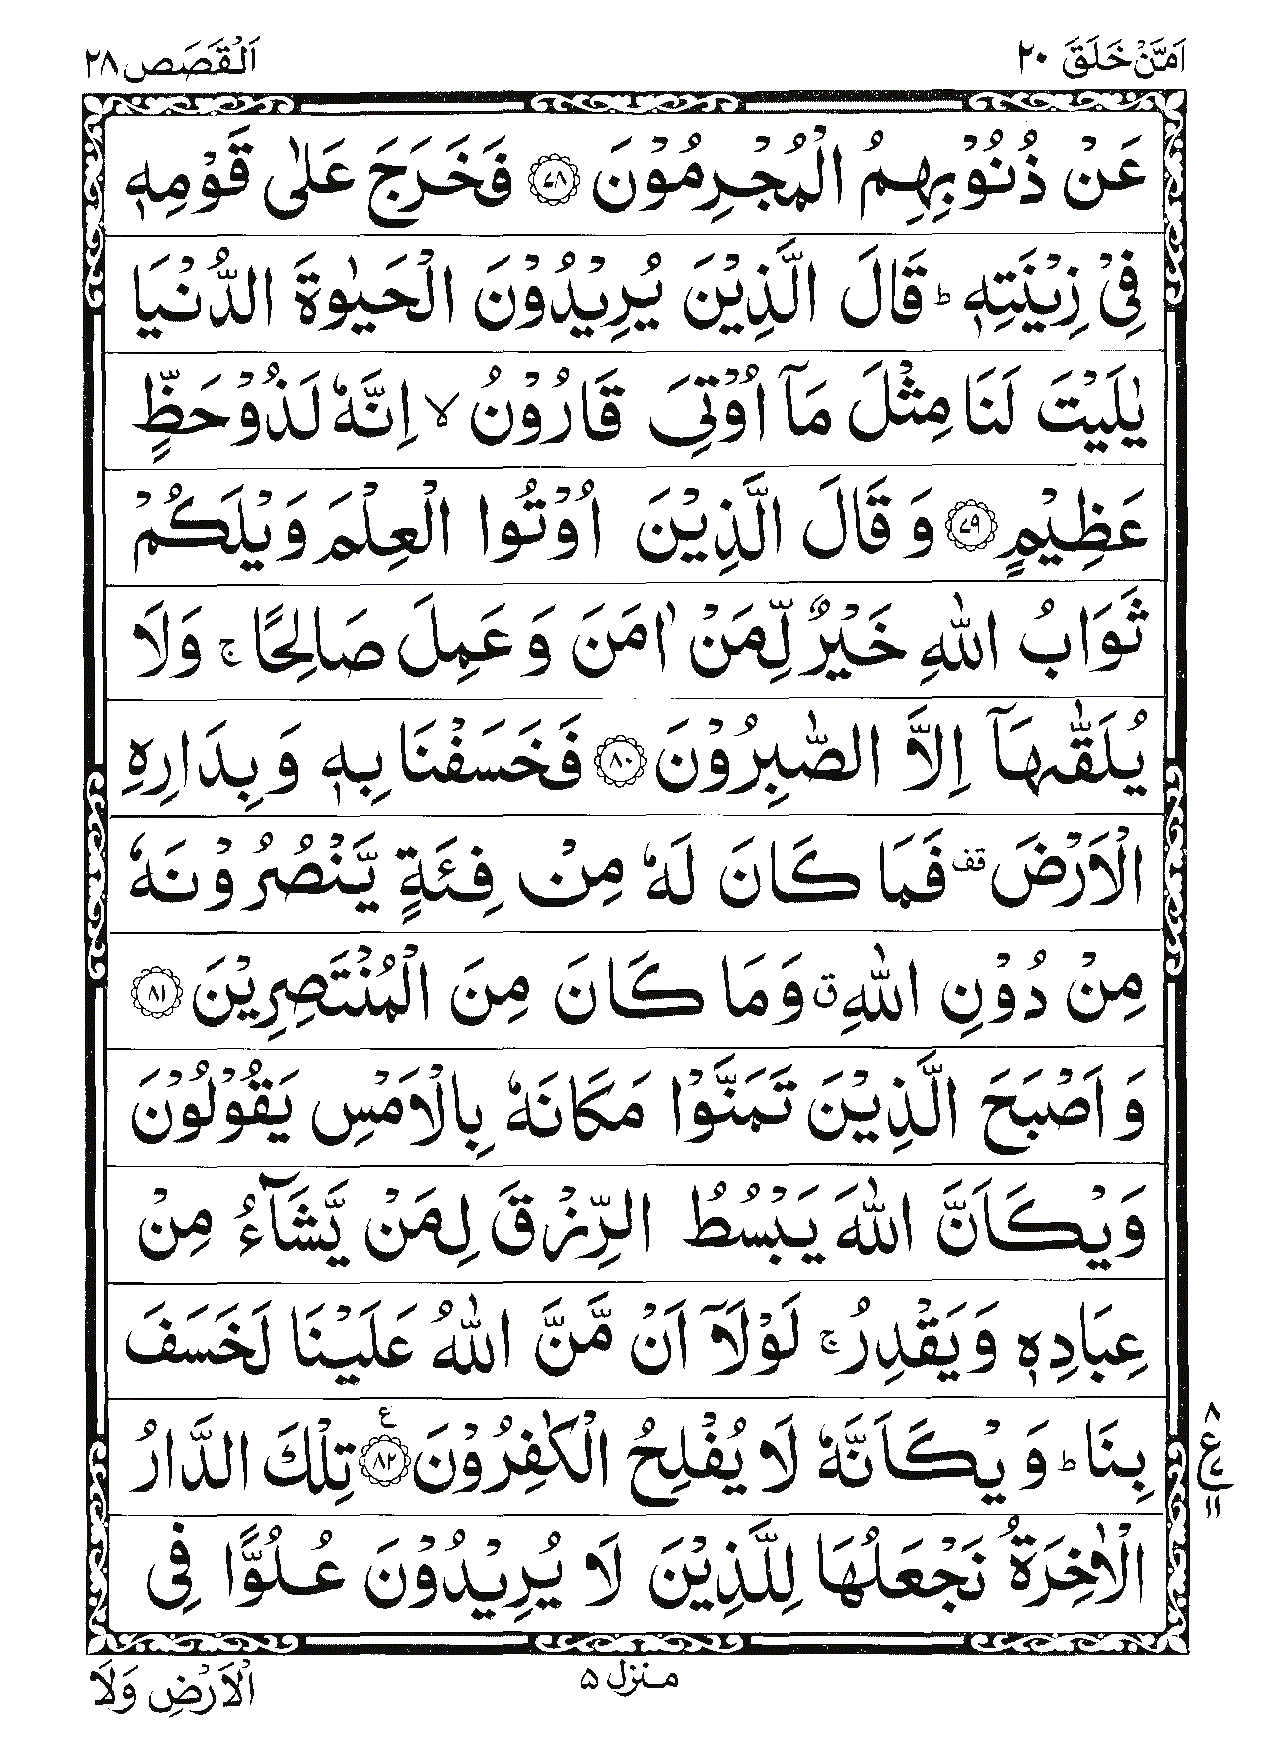 اَمَّنْ خَلَقَ ٢٠
اَلْقَصَص ٢٨
عَنْ ذُنُوْبِهِمُ الْمُجْرِمُوْنَ ﴿٧٨﴾ فَخَرَجَ عَلٰى قَوْمِهٖ
فِيْ زِيْنَتِهٖ ؕ قَالَ الَّذِيْنَ يُرِيْدُوْنَ الْحَيٰوةَ الدُّنْيَا
يٰلَيْتَ لَنَا مِثْلَ مَاۤ اُوْتِيَ قَارُوْنُ ۙ اِنَّهٗ لَذُوْ حَظٍّ
عَظِيْمٍ ﴿٧٩﴾ وَ قَالَ الَّذِيْنَ اُوْتُوا الْعِلْمَ وَيْلَكُمْ
ثَوَابُ اللّٰهِ خَيْرٌ لِّمَنْ اٰمَنَ وَ عَمِلَ صَالِحًا ۚ وَلَا
يُلَقّٰىهَاۤ اِلَّا الصّٰبِرُوْنَ ﴿٨٠﴾ فَخَسَفْنَا بِهٖ وَ بِدَارِهِ
الْاَرْضَ قف فَمَا كَانَ لَهٗ مِنْ فِئَةٍ يَّنْصُرُوْنَهٗ
مِنْ دُوْنِ اللّٰهِ ق وَمَا كَانَ مِنَ الْمُنْتَصِرِيْنَ ﴿٨١﴾
وَ اَصْبَحَ الَّذِيْنَ تَمَنَّوْا مَكَانَهٗ بِالْاَمْسِ يَقُوْلُوْنَ
وَيْكَاَنَّ اللّٰهَ يَبْسُطُ الرِّزْقَ لِمَنْ يَّشَآءُ مِنْ
عِبَادِهٖ وَ يَقْدِرُ ۚ لَوْلَاۤ اَنْ مَّنَّ اللّٰهُ عَلَيْنَا لَخَسَفَ
بِنَا ؕ وَ يْكَاَنَّهٗ لَا يُفْلِحُ الْكٰفِرُوْنَ ﴿٨٢﴾ ع تِلْكَ الدَّارُ
٨ ع ٧ ١١
الْاٰخِرَةُ نَجْعَلُهَا لِلَّذِيْنَ لَا يُرِيْدُوْنَ عُلُوًّا فِي
منزل ٥
الْاَرْضِ وَلَا